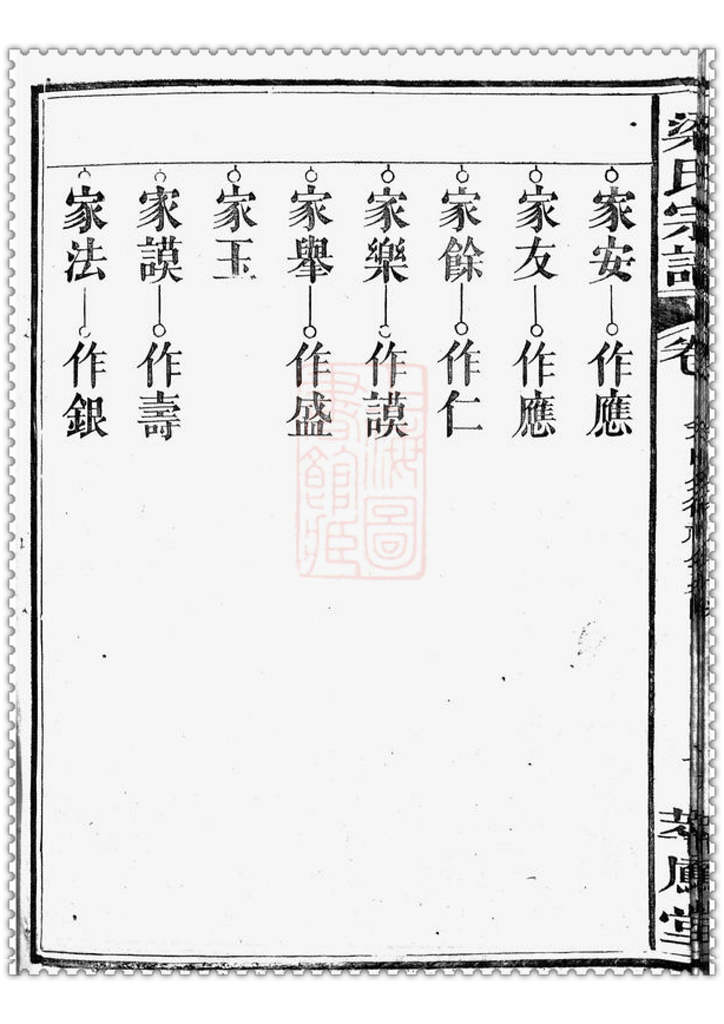 梁氏宗譜
卷
家安 作應
家友 作應
家餘 作仁
家樂 作謨
家舉 作盛
家玉
家謨 作壽
家法 作銀
上海圖
書館藏